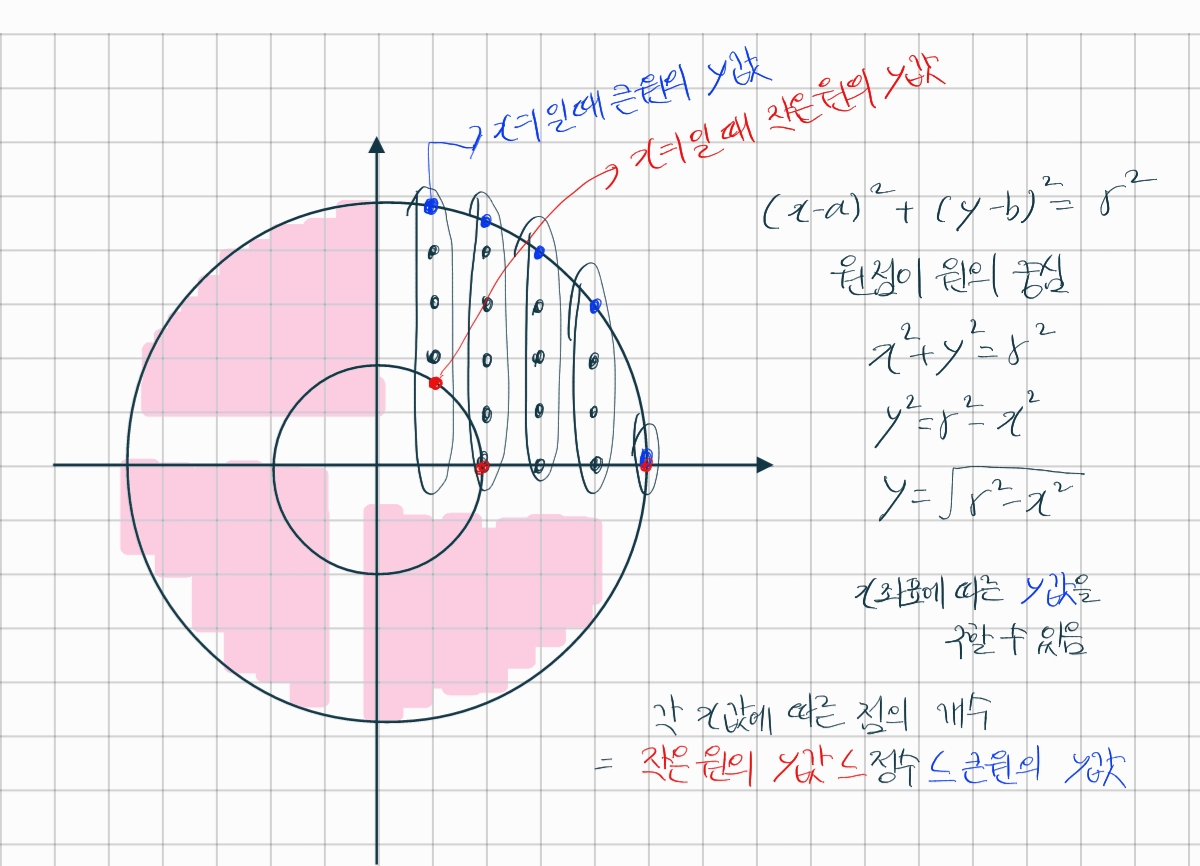 x가 1일 때 큰 원의 y값
x가 1일 때 작은 원의 y값
(x-a)² + (y-b)² = r²
원점이 원의 중심
x² + y² = r²
y² = r² - x²
y = √(r² - x²)
x좌표에 따른 y값을
구할 수 있음
각 x값에 따른 점의 개수
= 작은 원의 y값 ≤ 정수 ≤ 큰 원의 y값